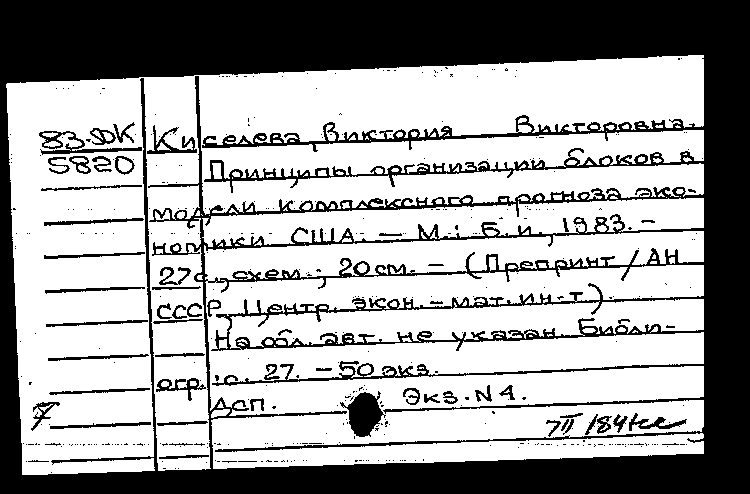 83-5ДК Киселева, Виктория Викторовна.
5820 Принципы организации блоков в
модели комплексного прогноза эко-
номики США. — М.: Б.и., 1983. -
27с., схем.; 20см. - (Препринт / АН
СССР, Центр. экон.-мат. ин-т).
На обл. авт. не указан. Библи-
огр.: с. 27. - 50 экз.
Дсп. Экз. N 4.